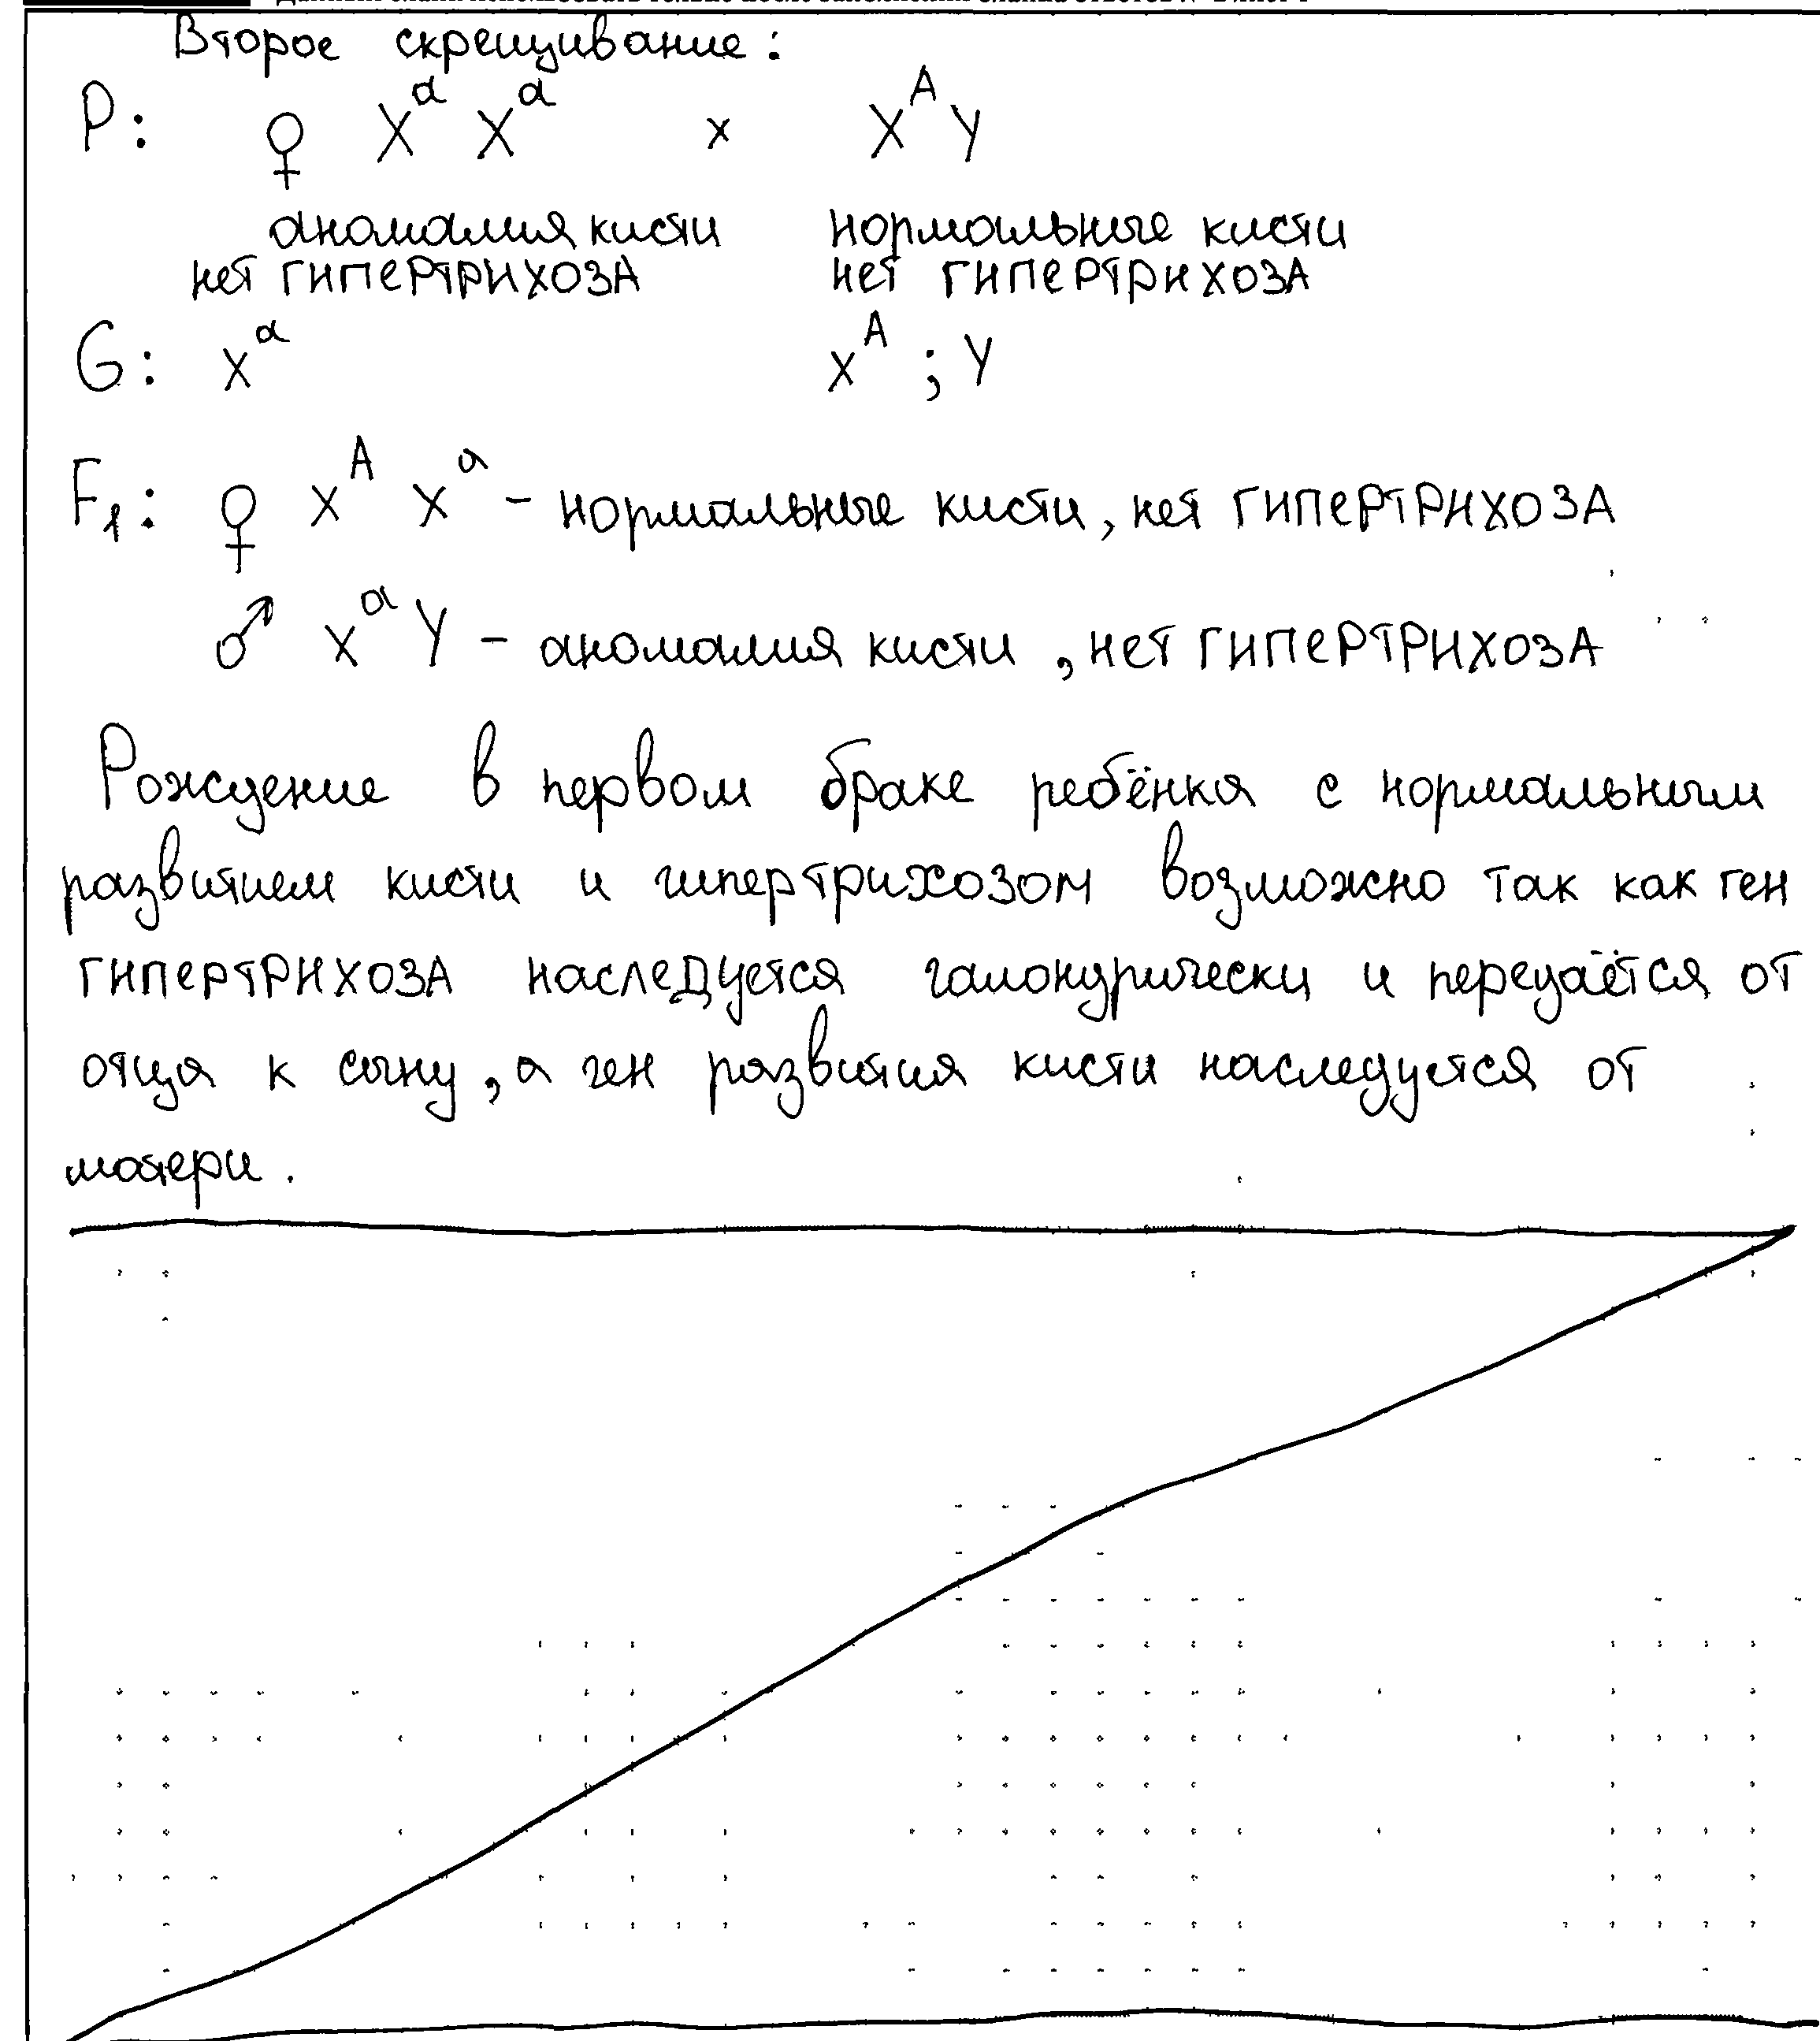 Второе скрещивание:
P: ♀ X^a X^a x X^A Y
аномалия кисти нормальные кисти
нет гипертрихоза нет гипертрихоза
G: X^a X^A ; Y
F1: ♀ X^A X^a – нормальные кисти, нет гипертрихоза
♂ X^a Y – аномалия кисти, нет гипертрихоза
Рождение в первом браке ребёнка с нормальным
развитием кисти и гипертрихозом возможно так как ген
гипертрихоза наследуется галондрически и передаётся от
отца к сыну, а ген развития кисти наследуется от
матери.